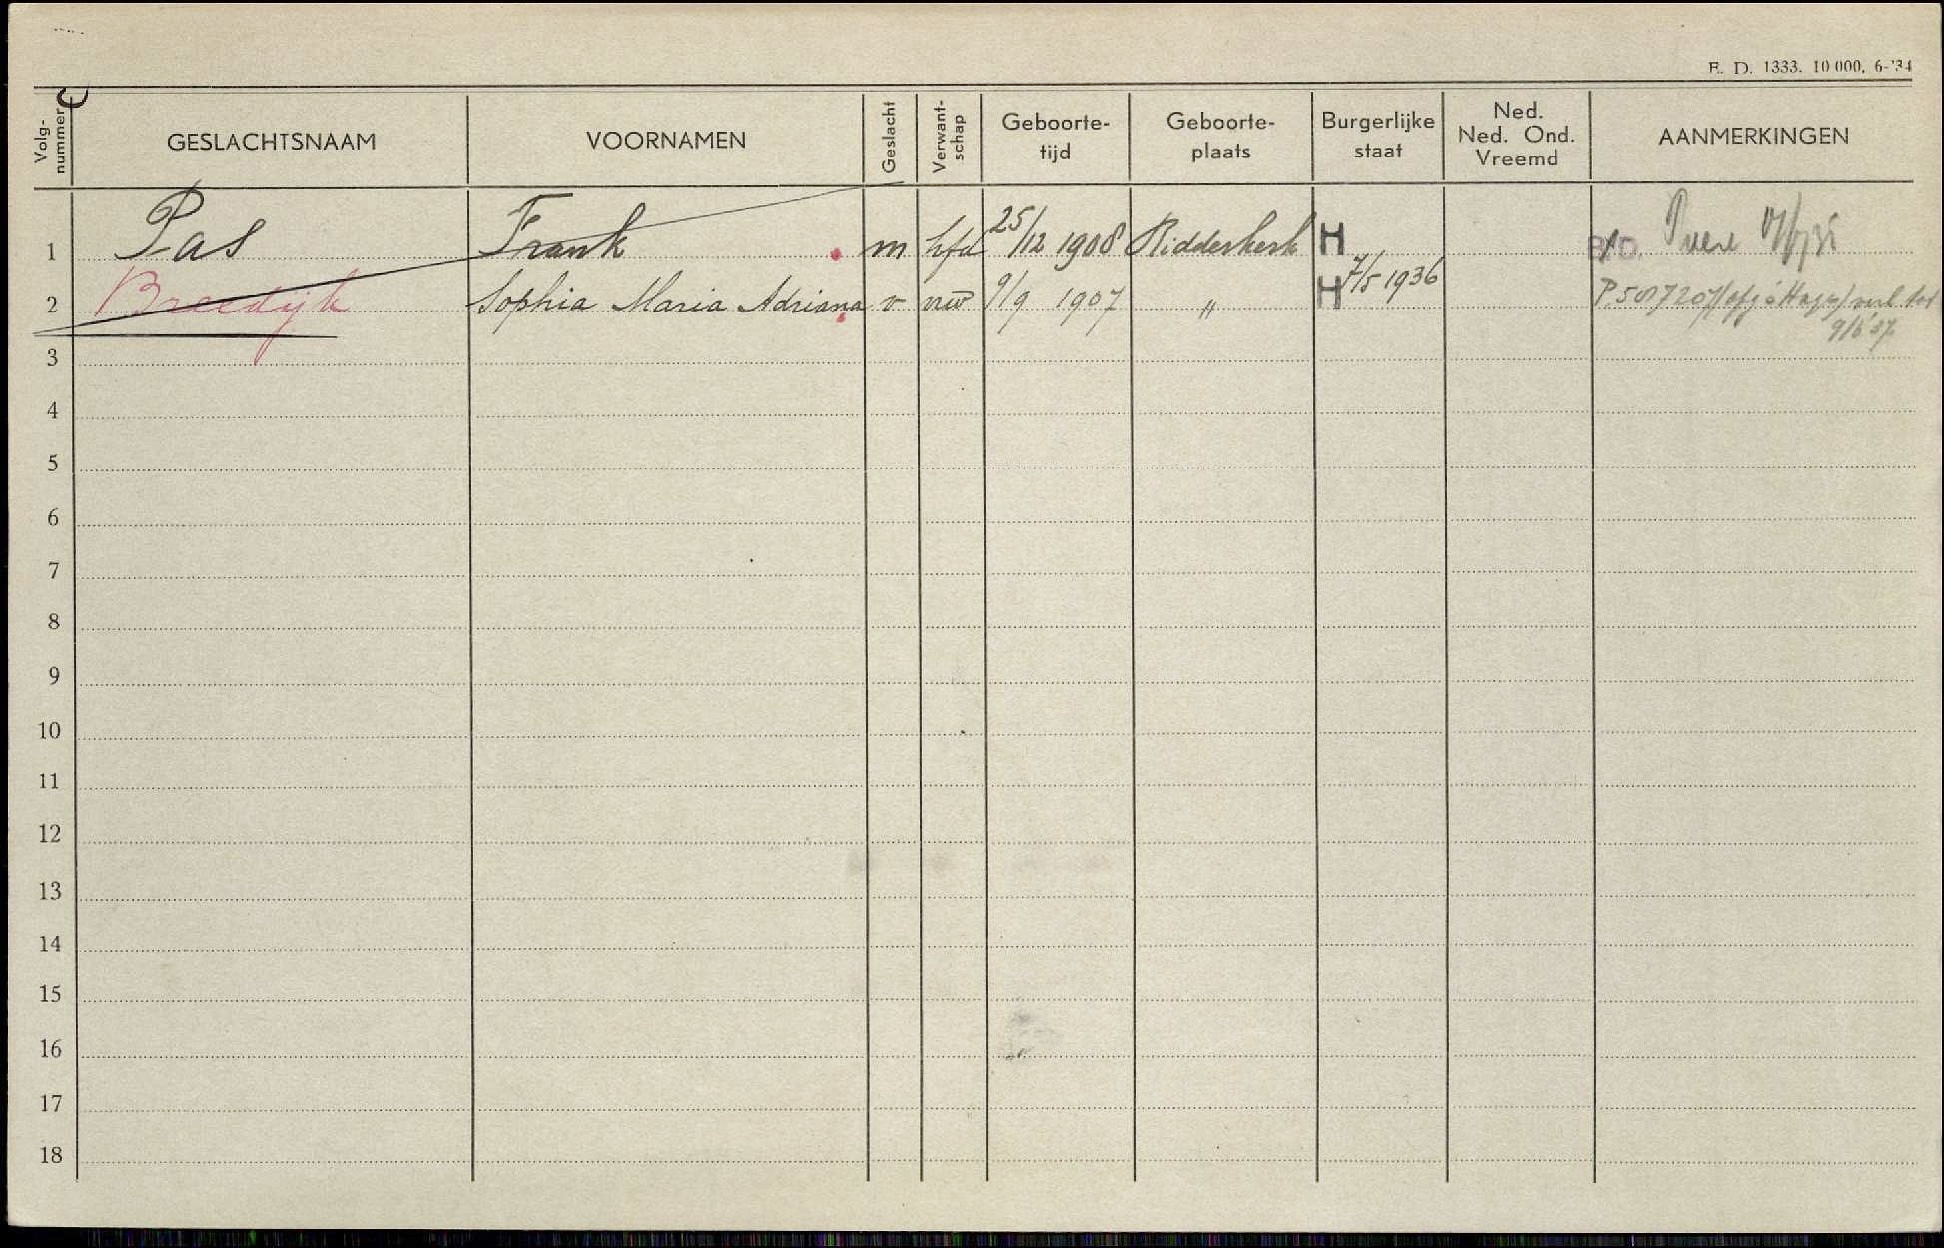 E. D. 1333. 10 000, 6-'34
Volg-nummer GESLACHTSNAAM VOORNAMEN Geslacht Verwant-schap Geboorte-tijd Geboorte-plaats Burgerlijke staat Ned. Ned. Ond. Vreemd AANMERKINGEN
1 Pas Frank m hfd 25/12 1908 Ridderkerk H
2 Breedijk Sophia Maria Adriana v vw 9/9 1907 " H 7/5 1936
3
4
5
6
7
8
9
10
11
12
13
14
15
16
17
18